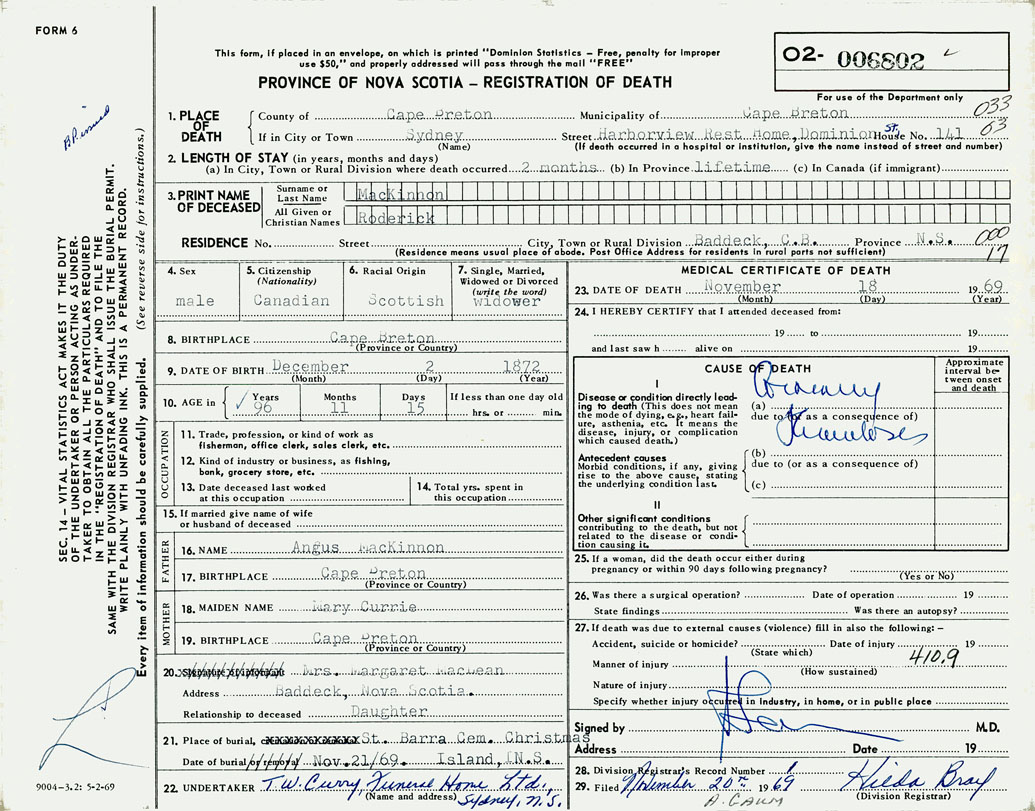 FORM 6
This form, if placed in an envelope, on which is printed "Dominion Statistics – Free, penalty for improper
use $50," and properly addressed will pass through the mail "FREE"
PROVINCE OF NOVA SCOTIA – REGISTRATION OF DEATH
02- 006802
For use of the Department only
033
63
1. PLACE OF DEATH
County of Cape Breton Municipality of Cape Breton
If in City or Town Sydney Street Harborview Rest Home, Dominion St. House No. 141
(Name) (If death occurred in a hospital or institution, give the name instead of street and number)
2. LENGTH OF STAY (in years, months and days)
(a) In City, Town or Rural Division where death occurred 2 months (b) In Province lifetime (c) In Canada (if immigrant)
3. PRINT NAME OF DECEASED
Surname or Last Name MacKinnon
All Given or Christian Names Roderick
RESIDENCE No. Street City, Town or Rural Division Baddeck, C.B. Province N.S.
(Residence means usual place of abode. Post Office Address for residents in rural parts not sufficient)
000
17
4. Sex
male
5. Citizenship
(Nationality)
Canadian
6. Racial Origin
Scottish
7. Single, Married,
Widowed or Divorced
(write the word)
widower
8. BIRTHPLACE Cape Breton
(Province or Country)
9. DATE OF BIRTH December 2 1872
(Month) (Day) (Year)
10. AGE in Years Months Days If less than one day old
96 11 15 hrs. or min.
OCCUPATION
11. Trade, profession, or kind of work as
fisherman, office clerk, sales clerk, etc.
12. Kind of industry or business, as fishing,
bank, grocery store, etc.
13. Date deceased last worked
at this occupation
14. Total yrs. spent in
this occupation
15. If married give name of wife
or husband of deceased
FATHER
16. NAME Angus MacKinnon
17. BIRTHPLACE Cape Breton
(Province or Country)
MOTHER
18. MAIDEN NAME Mary Currie
19. BIRTHPLACE Cape Breton
(Province or Country)
20. Signature of informant Mrs. Margaret MacLean
Address Baddeck, Nova Scotia.
Relationship to deceased Daughter
21. Place of burial, St. Barra Cem. Christmas
Date of burial or removal Nov.21/69. Island, N.S.
22. UNDERTAKER T.W. Curry, Funeral Home Ltd.,
(Name and address) Sydney, N.S.
MEDICAL CERTIFICATE OF DEATH
23. DATE OF DEATH November 18 1969
(Month) (Day) (Year)
24. I HEREBY CERTIFY that I attended deceased from:
19 to 19
and last saw h alive on 19
CAUSE OF DEATH
Approximate
interval be-
tween onset
and death
I
Disease or condition directly lead-
ing to death (This does not mean
the mode of dying, e.g., heart fail-
ure, asthenia, etc. It means the
disease, injury, or complication
which caused death.)
(a) Coronary
due to (or as a consequence of)
Thrombosis
Antecedent causes
Morbid conditions, if any, giving
rise to the above cause, stating
the underlying condition last.
(b)
due to (or as a consequence of)
(c)
II
Other significant conditions
contributing to the death, but not
related to the disease or condi-
tion causing it.
25. If a woman, did the death occur either during
pregnancy or within 90 days following pregnancy?
(Yes or No)
26. Was there a surgical operation? Date of operation 19
State findings Was there an autopsy?
27. If death was due to external causes (violence) fill in also the following: –
Accident, suicide or homicide? Date of injury 19
(State which)
410.9
Manner of injury
(How sustained)
Nature of injury
Specify whether injury occurred in industry, in home, or in public place
Signed by M.D.
Address Date 19
28. Division Registrar's Record Number
29. Filed November 20th 1969 Hilda Bray
(Division Registrar)
SEC. 14 – VITAL STATISTICS ACT MAKES IT THE DUTY
OF THE UNDERTAKER OR PERSON ACTING AS UNDER-
TAKER TO OBTAIN ALL THE PARTICULARS REQUIRED
IN THE "REGISTRATION OF DEATH" AND TO FILE THE
SAME WITH THE DIVISION REGISTRAR WHO SHALL ISSUE THE BURIAL PERMIT.
WRITE PLAINLY WITH UNFADING INK. THIS IS A PERMANENT RECORD.
Every item of information should be carefully supplied. (See reverse side for instructions.)
9004-3.2: 5-2-69